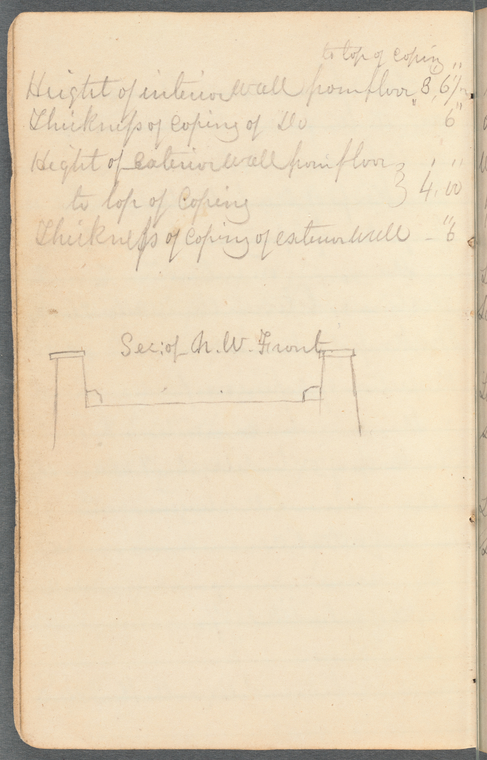 to top of coping
Height of interior wall from floor 3, 6½"
Thickness of coping of Do 6"
Hight of exterior wall from floor
to top of coping } 4, 00
Thickness of coping of exterior wall - 6"
Sec: of N. W. Front